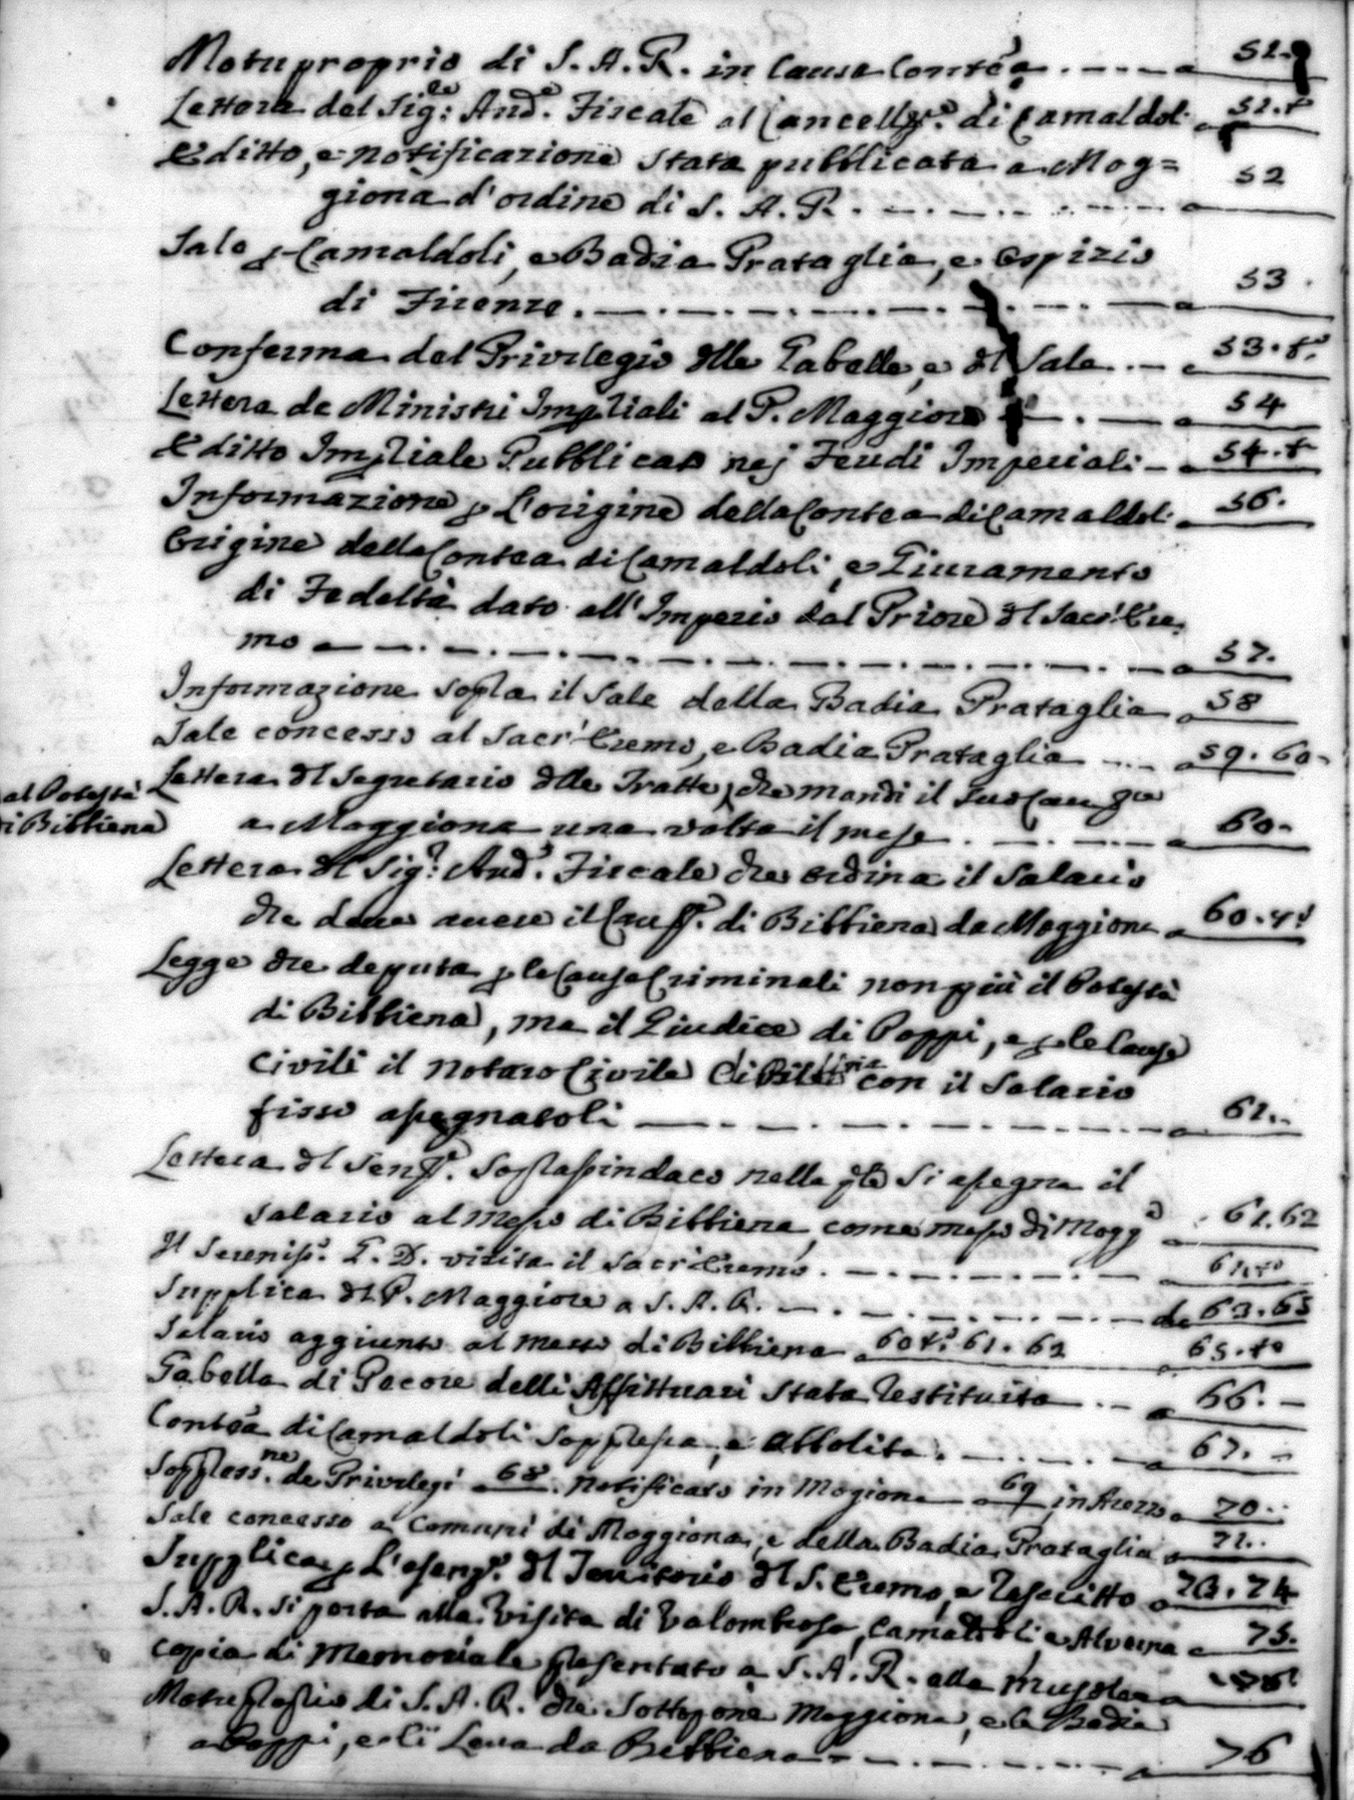 Motuproprio di S. A. R. in Causa Contèa 51.
Lettera del Sig.re Aud.e Fiscale al Cancell.re di Camaldoli 51.t
Editto, e notificazione stata pubblicata a Mog=
giona d'ordine di S. A. R. 52
Sale p Camaldoli, e Badia Prataglia, e Ospizio
di Firenze. 53
Conferma del Privilegio dlle Gabelle, e dl Sale 53.t.o
Lettera de Ministri Impliali al P. Maggiore 54
Editto Impliale Pubblicato nej Feudi Imperiali 54.t
Informazione p L'origine della Contea di Camaldoli 56.
Origine della Contea di Camaldoli, e Giuramento
di Fedeltà dato all'Imperio dal Priore dl Sacr'Ere,
mo 57.
Informazione sopra il Sale della Badia Prataglia 58
Sale concesso al Sacr'Eremo, e Badia Prataglia 59. 60
al Potestà
di Bibbiena
Lettera dl Segretario dlle Tratte, che mandi il suo
a Moggiona una volta il mese 60
Lettera dl Sig.r Aud.e Fiscale che ordina il Salario
che deve avere il di Bibbiena da Moggiona 60.
Legge che deputa p le Cause Criminali non più il Potestà
di Bibbiena, ma il Giudice di Poppi, e p le Cause
Civili il notaro Civile di Bibbiena con il Salario
fisso assegnatoli 61.
Lettera dl Soprasindaco nella qle si assegna il
salario al messo di Bibbiena, come messo di Mogg.a 61.62
Il Sereniss.o G. D. visita il Sacr'Eremo.
Supplica dl P. Maggiore a S. A. R. da 63. 65
Salario aggiunto al messo di Bibbiena 60 t.o 61. 62 65. t.o
Gabella di Pecore delli Affittuari Stata restituita 66.
Contèa di Camaldoli soppressa, e abbolita. 67.
Soppress.ne de Privilegi 68. Notificato in Mogiona 69 in Arezzo 70.
Sale concesso a Comuni di Moggiona, e della Badia Prataglia
Supplica p L'esenz.e dl Territorio dl S. Eremo, e rescritto 73. 74
S. A. R. si porta alla Visita di Valombrosa, Camaldoli e Alverna 75.
Copia di Memoriale presentato a S. A. R. alla
Motuproprio di S. A. R. che sottopone Moggiona, e la Badia
a Poppi, e li Leva da Bibbiena 76